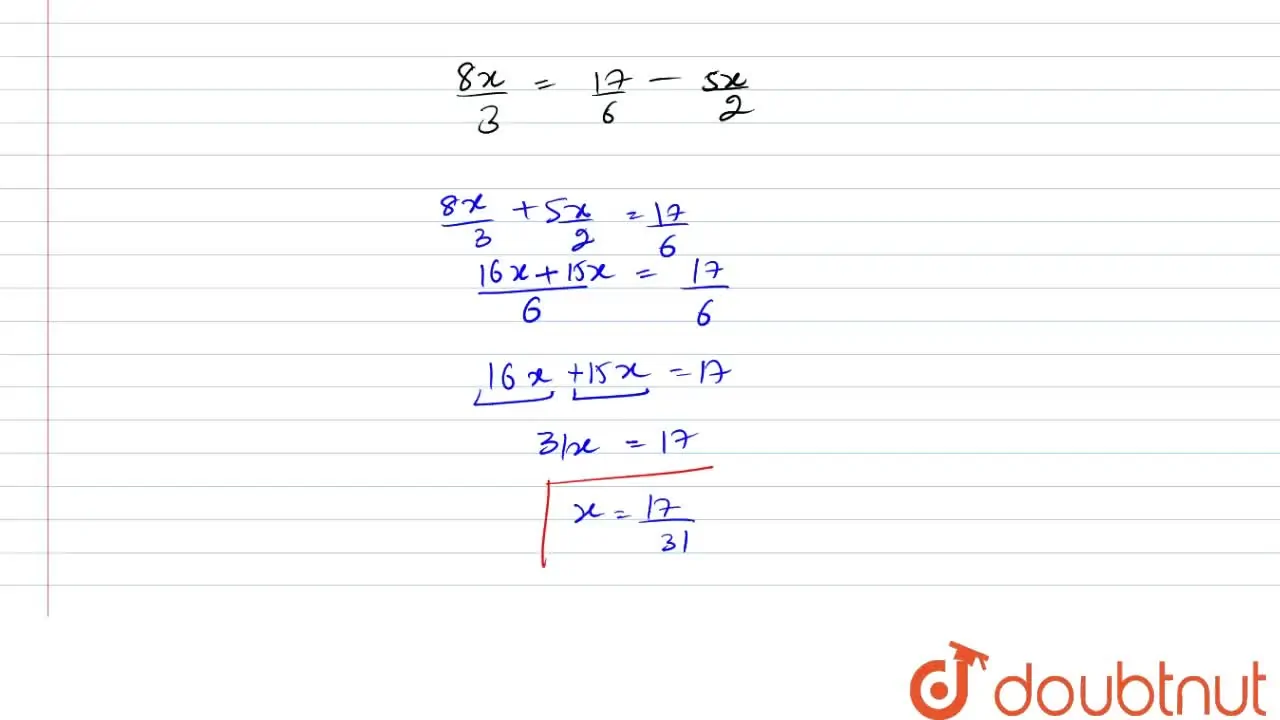 8x/3 = 17/6 - 5x/2
8x/3 + 5x/2 = 17/6
16x + 15x/6 = 17/6
16x + 15x = 17
31x = 17
x = 17/31
doubtnut